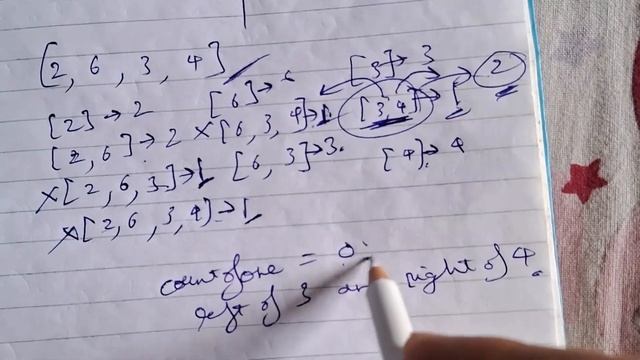 [2, 6, 3, 4]
[2] → 2
[2, 6] → 2
×[2, 6, 3] → 1
×[2, 6, 3, 4] → 1
[6] → 6
×[6, 3, 4] → 1
[6, 3] → 3.
[3] → 3
[3, 4] → 1
2
[4] → 4
countofone = 0;
left of 3 and right of 4.